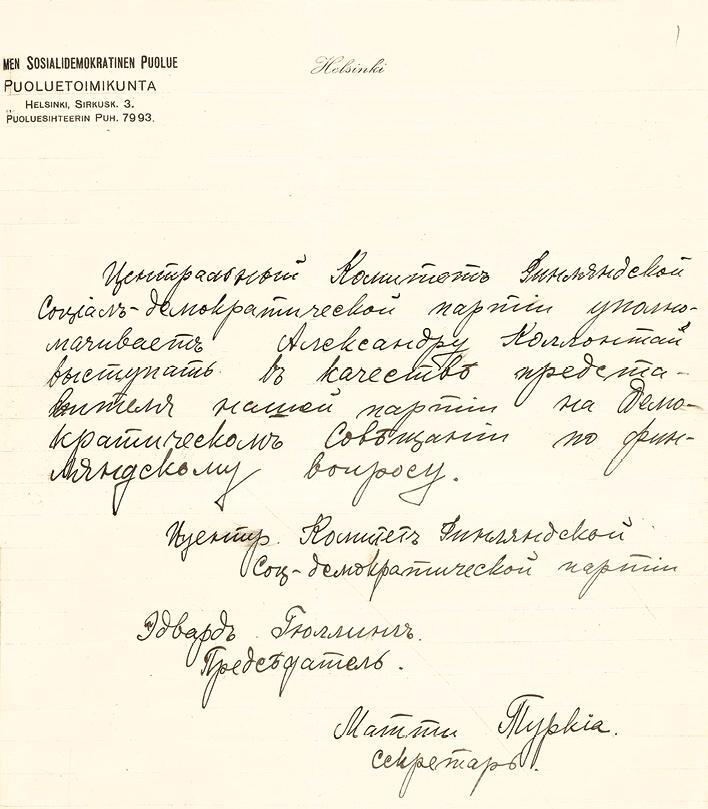 MEN SOSIALIDEMOKRATINEN PUOLUE
PUOLUETOIMIKUNTA
HELSINKI, SIRKUSK. 3.
PUOLUESIHTEERIN PUH. 7993.
Helsinki
Центральный Комитетъ Финляндской
Соціалъ-демократической партіи уполно-
мачиваетъ Александру Коллонтай
выступать въ качествѣ предста-
вителя нашей партіи на Демо-
кратическомъ Совѣщаніи по фин-
ляндскому вопросу.
Центр. Комитетъ Финляндской
Соц-демократической партіи
Эдвардъ Гюллингъ.
Предсѣдатель.
Матти Туркіа.
секретарь.